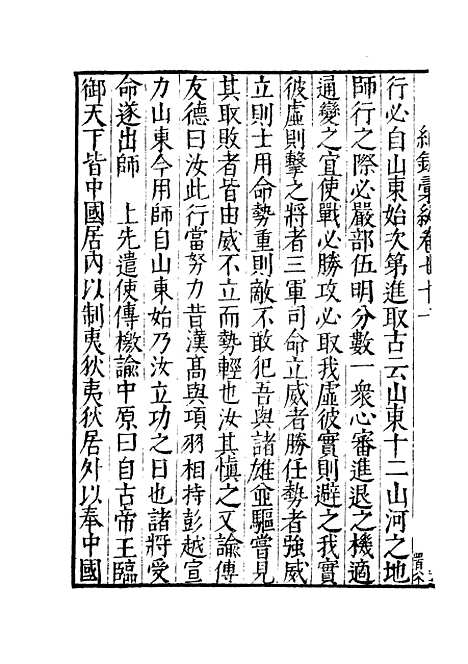 紀錄彙編卷
行必自山東始次第進取古云山東十二山河之地
師行之際必嚴部伍明分數一衆心審進退之機適
通變之宜使戰必勝攻必取我虛彼實則避之我實
彼虛則擊之將者三軍司命立威者勝任勢者強威
立則士用命勢重則敵不敢犯吾與諸雄並驅嘗見
其取敗者皆由威不立而勢輕也汝其慎之又諭傅
友德曰汝此行當努力昔漢高與項羽相持彭越宣
力山東今用師自山東始乃汝立功之日也諸將受
命遂出師　上先遣使傳檄諭中原曰自古帝王臨
御天下皆中國居內以制夷狄夷狄居外以奉中國